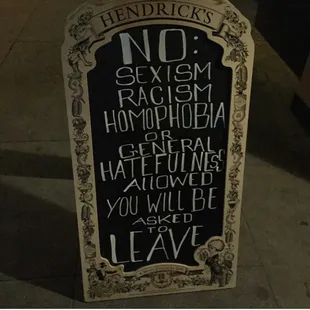 HENDRICK'S
NO:
SEXISM
RACISM
HOMOPHOBIA
OR
GENERAL
HATEFULNESS
ALLOWED
YOU WILL BE
ASKED
TO
LEAVE
HENDRICK'S